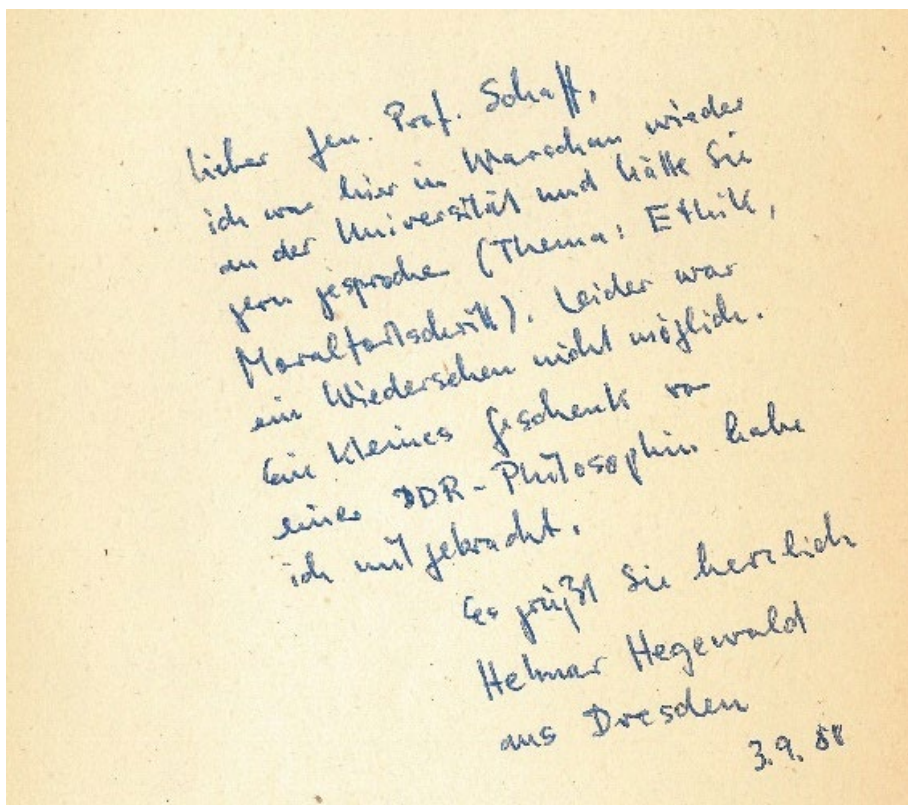 Lieber Gen. Prof. Schaff,
ich war hier in Warschau wieder
an der Universität und hätte Sie
gern gesprochen (Thema: Ethik,
Moralfortschritt). Leider war
ein Wiedersehen nicht möglich.
Ein kleines Geschenk von
einer DDR-Philosophin habe
ich mitgebracht.
Es grüßt Sie herzlich
Helmar Hegewald
aus Dresden
3.9. 88